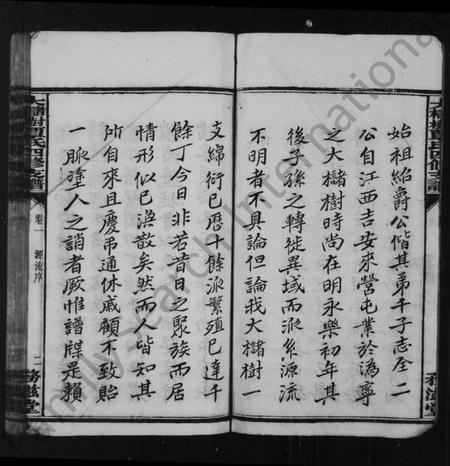 始祖紹爵公偕其弟千子志全二
公自江西吉安來營屯業於溈寧
之大櫧樹時尚在明永樂初年其
後子孫之轉徙異域而派系源流
不明者不具論但論我大櫧樹一
支綿衍已歷十餘派繁殖已達千
餘丁今日非若昔日之聚族而居
情形似已渙散矣然而人皆知其
所自來且慶吊通休戚顧不致貽
一脈塗人之誚者厥惟譜牒是賴
大櫧樹
氏四修支譜
卷一
源流序
二
務滋堂
務滋堂
family search international